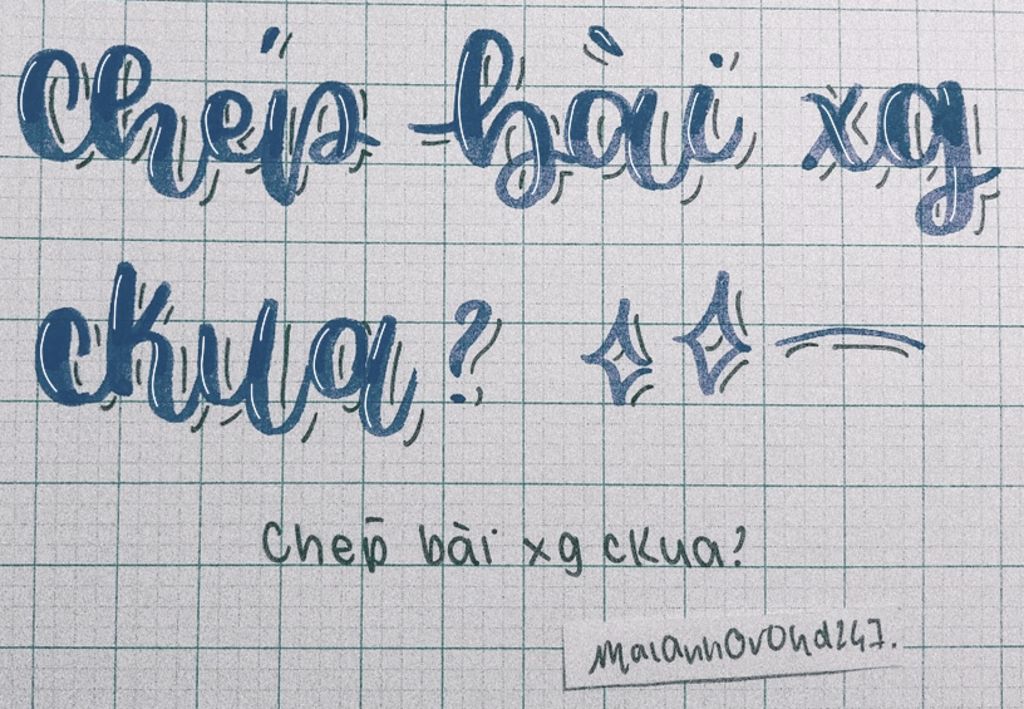 chép bài xg
ckua?
Chép bài xg ckua?